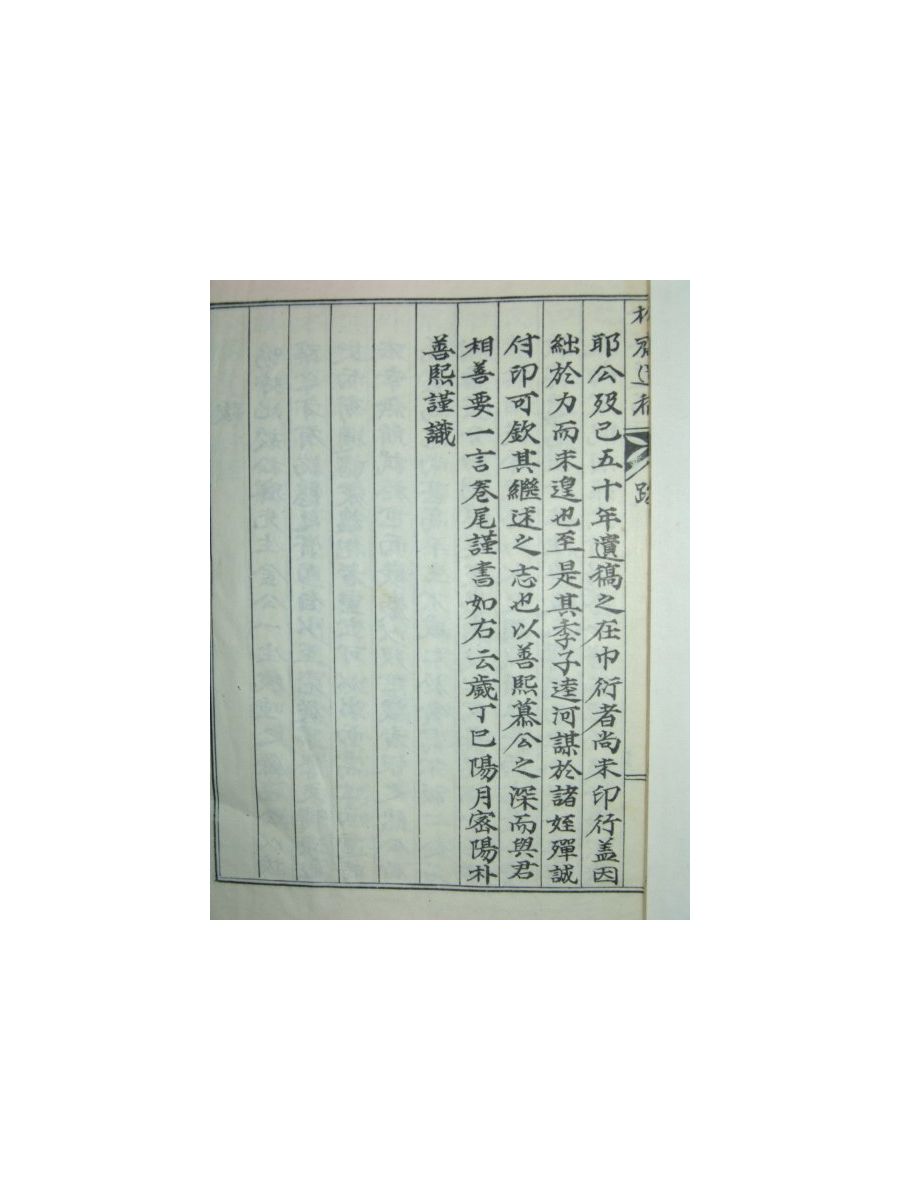 跋
耶公歿已五十年遺稿之在巾衍者尚未印行盖因
絀於力而未遑也至是其季子逵河謀於諸姪殫誠
付印可欽其繼述之志也以善熙慕公之深而與君
相善要一言卷尾謹書如右云歲丁巳陽月密陽朴
善熙謹識